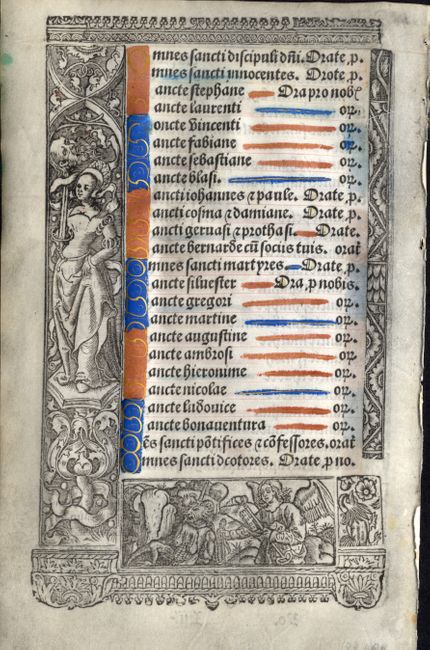 mnes sancti discipuli dñi. Orate p.
mnes sancti innocentes. Orote p.
ancte stephane Ora pro nob
ancte laurenti or.
oncte vincenti or.
ancte fabiane or.
ancte sebastiane or.
ancte blasi. or.
ancti iohannes ⁊ paule. Orate p.
ancti cosma ⁊ damiane. Orate p.
ancti geruasi ⁊ prothasi. Orate.
ancte bernarde cũ sociis tuis. orat
mnes sancti martyres. Orate p.
ancte siluester Ora p nobis.
ancte gregori or.
ancte martine or.
ancte augustine or.
ancte ambrosi or.
ancte hieronime or.
ancte nicolae or.
ancte ludouice or.
ancte bonauentura or.
ẽs sancti põtifices ⁊ cõfessores. orat
mnes sancti dcotores. Orate p no.